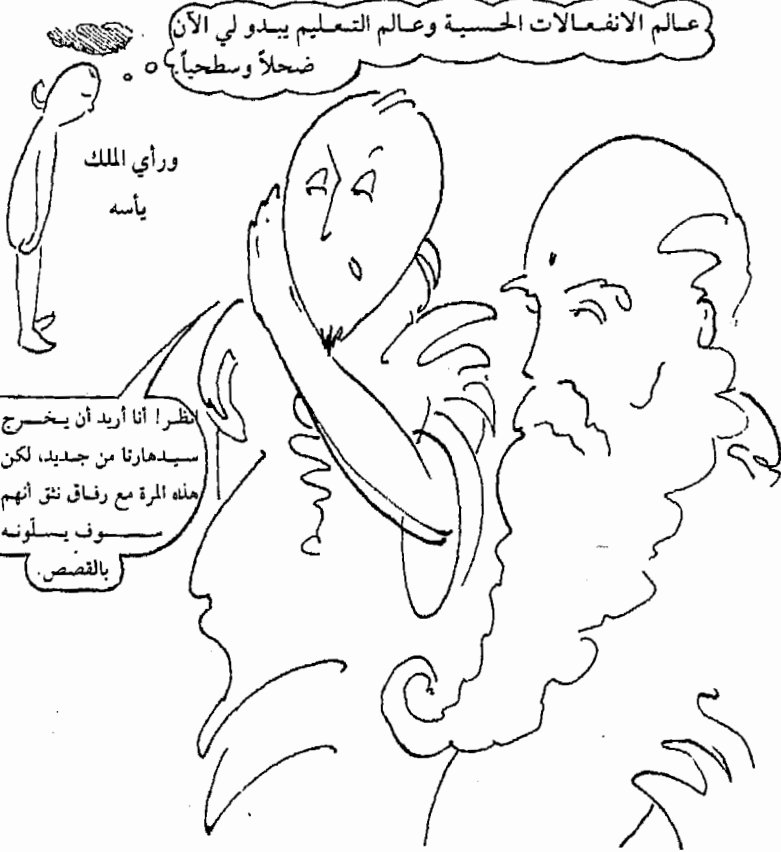 عالم الانفعالات الحسية وعالم التعليم يبدو لي الآن
ضحلاً وسطحياً.
ورأي الملك
يأسه
انظر! أنا أريد أن يخرج
سيدهارتا من جديد، لكن
هذه المرة مع رفاق نثق أنهم
سوف يسلّونه
بالقصص.